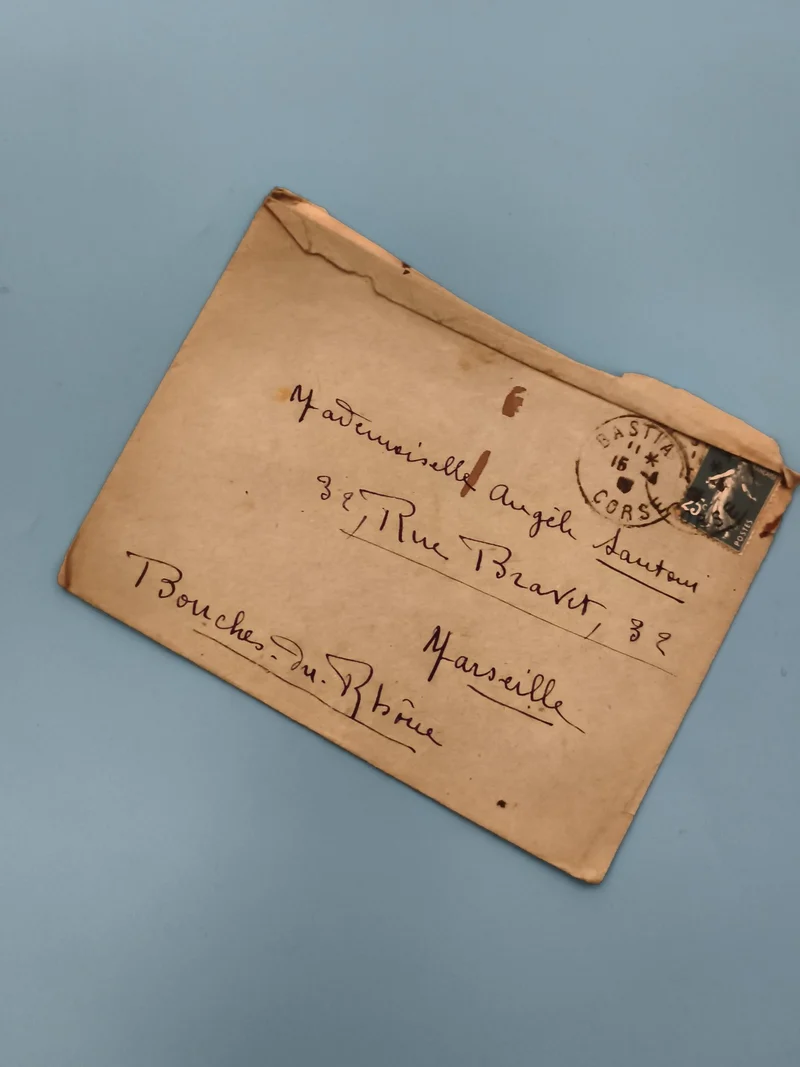 Mademoiselle Angèle Santoni
32, Rue Bravet, 32
Marseille
Bouches-du-Rhône
BASTIA
11 *
16
CORSE
25c
POSTES